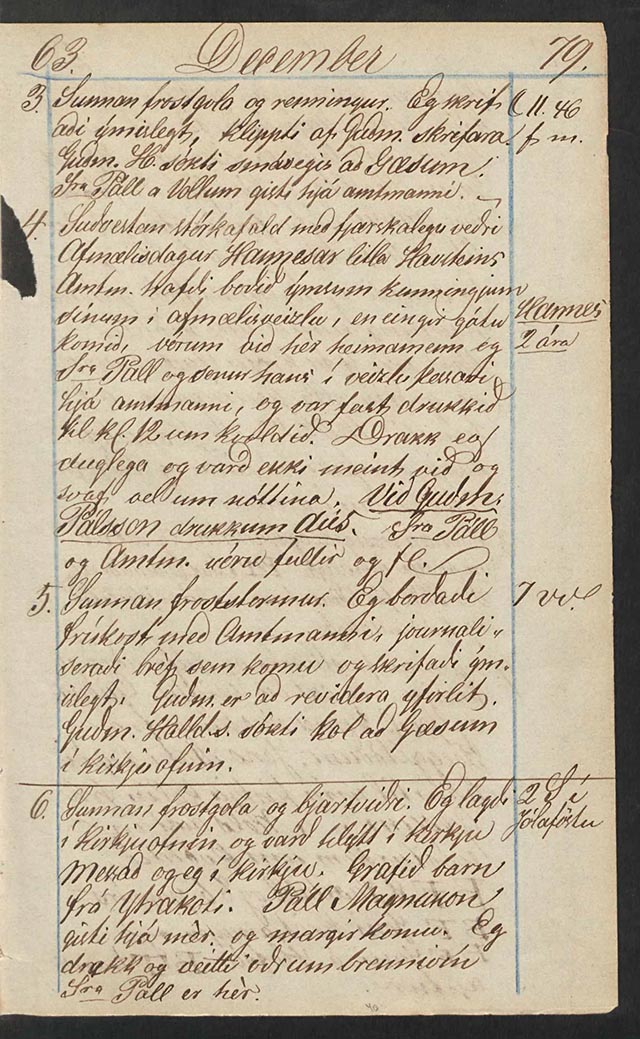 63. December 79.
3. Sunnan frostgola og renningur. Eg skrif- ☾ 11. 46
aði ýmislegt, klippti af Guðm. skrifara. f. m.
Guðm. H. sókti smávegis að Gæsum.
Sra Páll a Völlum gisti hjá amtmanni.
4. Suðvestan stórkafald með fjarskalegu veðri
Afmælisdagur Hannesar litla Hafsteins
Amtm. hafði boðið ýmsum kunningjum
sínum i afmælisveizlu, en eingir gátu Hannes
komið, vórum við hér heimamenn og 2 ára
Sra Páll og sonur hans í veizlu þessari
hjá amtmanni, og var fast drukkið
til kl. 12 um kvöldið. Drakk eg
duglega og varð ekki meint við og
svaf vel um nóttina. Við Guðm.
Pálsson drukkum dús. Sra Páll
og Amtm. vóru fullir og fl.
5. Sunnan froststormur. Eg borðaði 7 vv.
frúkost með Amtmanni, journali-
seraði bréf sem komu og skrifaði ým-
islegt. Guðm. er að revidera yfirlit.
Guðm. Halld.s. sókti kol að Gæsum
í kirkjuofnin.
6. Sunnan frostgola og bjartviðri. Eg lagði 2 S í
í kirkjuofnin og varð hlýtt í kirkju Jólaföstu
Messað og eg í kirkju. Grafið barn
frá Ytrakoti. Páll Magnusson
gisti hjá mér og margir komu. Eg
drakk og veitti öðrum brennivín
Sra Páll er hér.